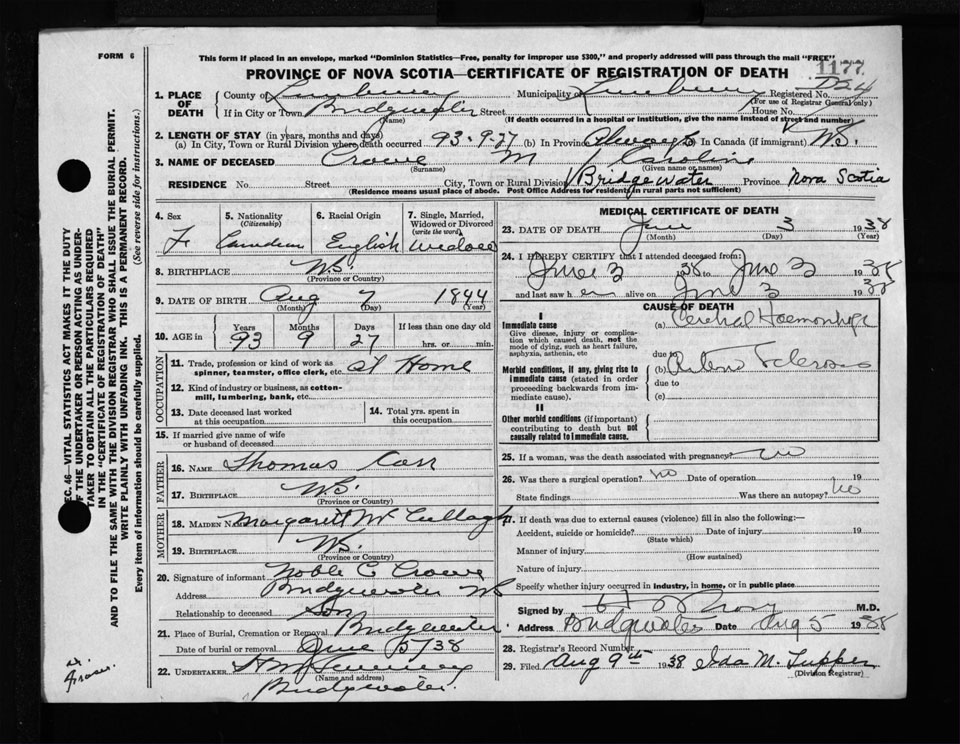 FORM 6
This form if placed in an envelope, marked "Dominion Statistics—Free, penalty for improper use $300," and properly addressed will pass through the mail "FREE"
PROVINCE OF NOVA SCOTIA—CERTIFICATE OF REGISTRATION OF DEATH
1177
1. PLACE OF DEATH
County of Lunenburg Municipality of Lunenburg Registered No. 724
(For use of Registrar General only)
If in City or Town Bridgewater Street House No.
(Name)
(If death occurred in a hospital or institution, give the name instead of street and number)
2. LENGTH OF STAY (in years, months and days)
(a) In City, Town or Rural Division where death occurred 93-9-27 (b) In Province Always (c) In Canada (if immigrant) N.S.
3. NAME OF DECEASED Crowe M Caroline
(Surname) (Given name or names)
RESIDENCE No. Street City, Town or Rural Division Bridgewater Province Nova Scotia
(Residence means usual place of abode. Post Office Address for residents in rural parts not sufficient)
4. Sex
F
5. Nationality
(Citizenship)
Canadian
6. Racial Origin
English
7. Single, Married, Widowed or Divorced
(write the word)
Widowed
8. BIRTHPLACE N.S.
(Province or Country)
9. DATE OF BIRTH Aug 7 1844
(Month) (Day) (Year)
10. AGE IN
Years Months Days If less than one day old
93 9 27 hrs. or min.
OCCUPATION
11. Trade, profession or kind of work as spinner, teamster, office clerk, etc. at Home
12. Kind of industry or business, as cotton-mill, lumbering, bank, etc.
13. Date deceased last worked at this occupation
14. Total yrs. spent in this occupation
15. If married give name of wife or husband of deceased
FATHER
16. NAME Thomas Carr
17. BIRTHPLACE N.S.
(Province or Country)
MOTHER
18. MAIDEN NAME Margarett McCullagh
19. BIRTHPLACE N.S.
(Province or Country)
20. Signature of informant Noble C Crowe
Address Bridgewater NS
Relationship to deceased Son
21. Place of Burial, Cremation or Removal Bridgewater
Date of burial or removal June 5/38
22. UNDERTAKER
(Name and address)
Bridgewater.
MEDICAL CERTIFICATE OF DEATH
23. DATE OF DEATH June 3 1938
(Month) (Day) (Year)
24. I HEREBY CERTIFY that I attended deceased from:
June 3 1938 to June 3 1938
and last saw her alive on June 3 1938
CAUSE OF DEATH
I
Immediate cause
Give disease, injury or complication which caused death, not the mode of dying, such as heart failure, asphyxia, asthenia, etc
(a) Cerebral Haemorrhage
due to
Morbid conditions, if any, giving rise to immediate cause (stated in order proceeding backwards from immediate cause).
(b) Arterio Sclerosis
due to
(c)
II
Other morbid conditions (if important) contributing to death but not causally related to immediate cause.
25. If a woman, was the death associated with pregnancy? no
26. Was there a surgical operation? no Date of operation 19
State findings Was there an autopsy? no
27. If death was due to external causes (violence) fill in also the following:—
Accident, suicide or homicide? Date of injury 19
(State which)
Manner of injury
(How sustained)
Nature of injury
Specify whether injury occurred in industry, in home, or in public place
Signed by M.D.
Address Bridgewater Date Aug 5 1938
28. Registrar's Record Number
29. Filed Aug 9th 1938 Ida M. Tupper
(Division Registrar)
SEC. 46—VITAL STATISTICS ACT MAKES IT THE DUTY OF THE UNDERTAKER OR PERSON ACTING AS UNDERTAKER TO OBTAIN ALL THE PARTICULARS REQUIRED IN THE "CERTIFICATE OF REGISTRATION OF DEATH" AND TO FILE THE SAME WITH THE DIVISION REGISTRAR WHO SHALL ISSUE THE BURIAL PERMIT.
WRITE PLAINLY WITH UNFADING INK. THIS IS A PERMANENT RECORD.
Every item of information should be carefully supplied. (See reverse side for instructions.)